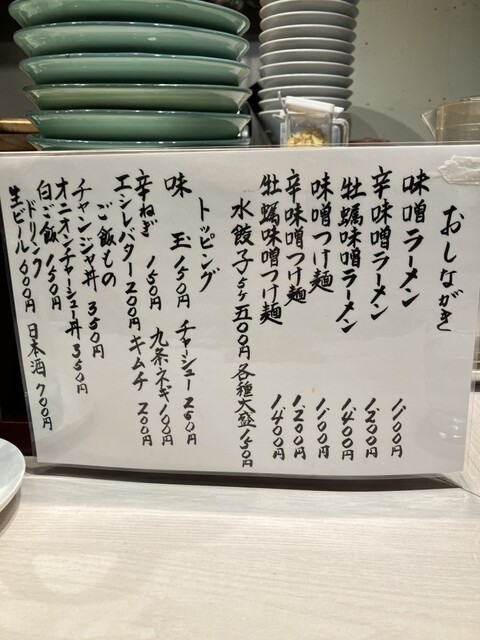 おしながき
味噌ラーメン 1100円
辛味噌ラーメン 1200円
牡蠣味噌ラーメン 1400円
味噌つけ麺 1100円
辛味噌つけ麺 1200円
牡蠣味噌つけ麺 1400円
水餃子5ヶ五00円 各種大盛150円
トッピング
味玉150円 チャーシュー250円
辛ねぎ150円 九条ネギ100円
エシレバター200円 キムチ200円
ご飯もの
チャンジャ丼350円
オニオンチャーシュー丼350円
白ご飯150円
ドリンク
生ビール600円 日本酒700円